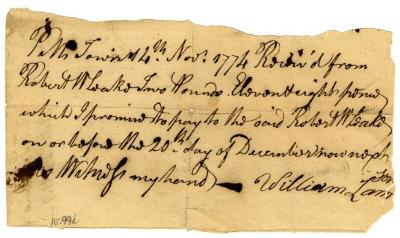 Pitts Town 14th Novr. 1774 Receiv'd from
Robert W Leake Two Pounds Eleven & eight pence
which I promise to pay to the said Robert W Leake
on or before the 20th day of December now next
as Witness my hand
William
10.992